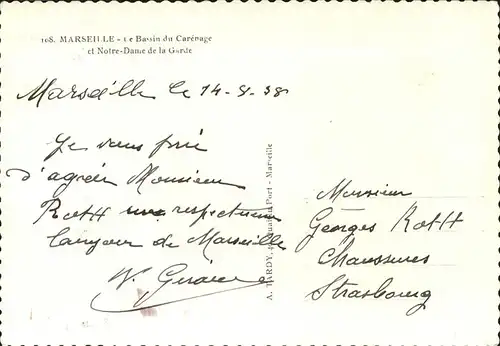 108. MARSEILLE - Le Bassin du Carénage
et Notre-Dame de la Garde
Marseille le 14-9-38
Je vous prie
d'agréer Monsieur
Roth respectueux
bonjour de Marseille
A. TARDY, Port - Marseille
Monsieur
Georges Roth
Chaussures
Strasbourg